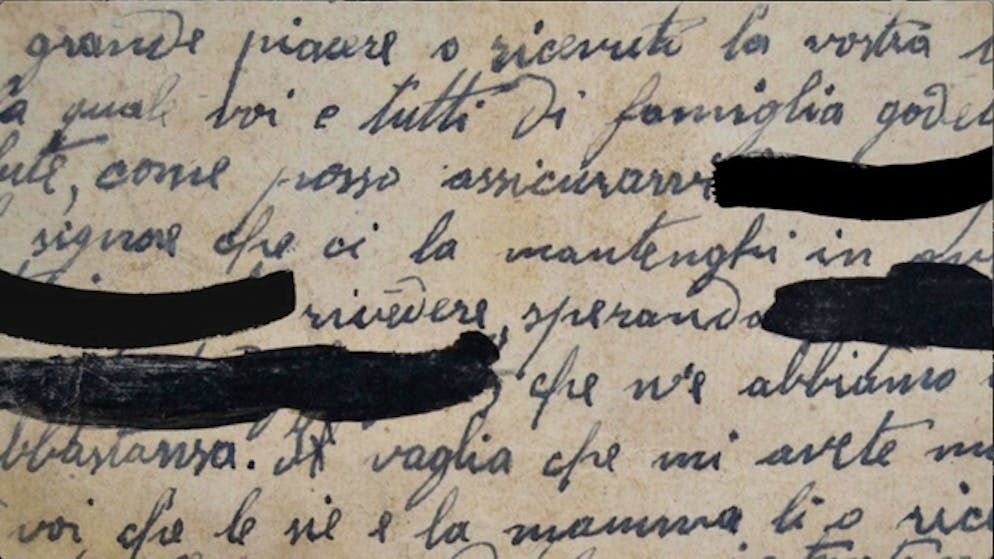 grande piacere o ricevuto la vostra
quale voi e tutti di famiglia
come posso assicurarvi
signore che ci la mantenghi in
rivedere, sperando
che n'e abbiamo
abbastanza. Il vaglia che mi avete
voi che le sie e la mamma li o